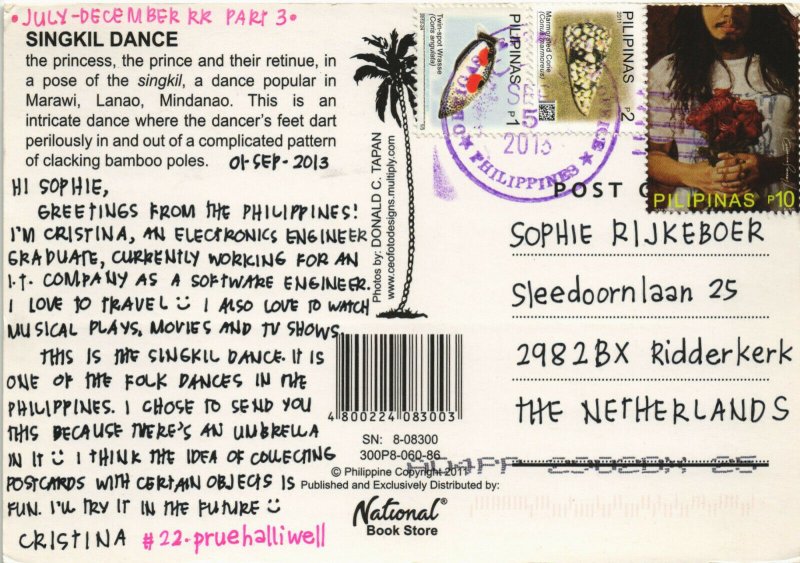 •JULY-DECEMBER RR PART 3•
SINGKIL DANCE
the princess, the prince and their retinue, in
a pose of the singkil, a dance popular in
Marawi, Lanao, Mindanao. This is an
intricate dance where the dancer's feet dart
perilously in and out of a complicated pattern
of clacking bamboo poles.
01-SEP-2013
HI SOPHIE,
GREETINGS FROM THE PHILIPPINES!
I'M CRISTINA, AN ELECTRONICS ENGINEER
GRADUATE, CURRENTLY WORKING FOR AN
I.T. COMPANY AS A SOFTWARE ENGINEER.
I LOVE TO TRAVEL I ALSO LOVE TO WATCH
MUSICAL PLAYS, MOVIES AND TV SHOWS.
THIS IS THE SINGKIL DANCE. IT IS
ONE OF THE FOLK DANCES IN THE
PHILIPPINES. I CHOSE TO SEND YOU
THIS BECAUSE THERE'S AN UMBRELLA
IN IT I THINK THE IDEA OF COLLECTING
POSTCARDS WITH CERTAIN OBJECTS IS
FUN. I'LL TRY IT IN THE FUTURE
CRISTINA #22-pruehalliwell
Photos by: DONALD C. TAPAN
www.ceofotodesigns.multiply.com
4 800224 083003
SN: 8-08300
300P8-060-86
© Philippine Copyright 2011
Published and Exclusively Distributed by:
National®
Book Store
Twin-spot Wrasse
(Coris angulata)
PILIPINAS
P1
Marmorated Cone
(Conus marmoreus)
2011
PILIPINAS
P2
PILIPINAS P10
2013
PHILIPPINES
POST C
SOPHIE RIJKEBOER
Sleedoornlaan 25
2982BX Ridderkerk
THE NETHERLANDS